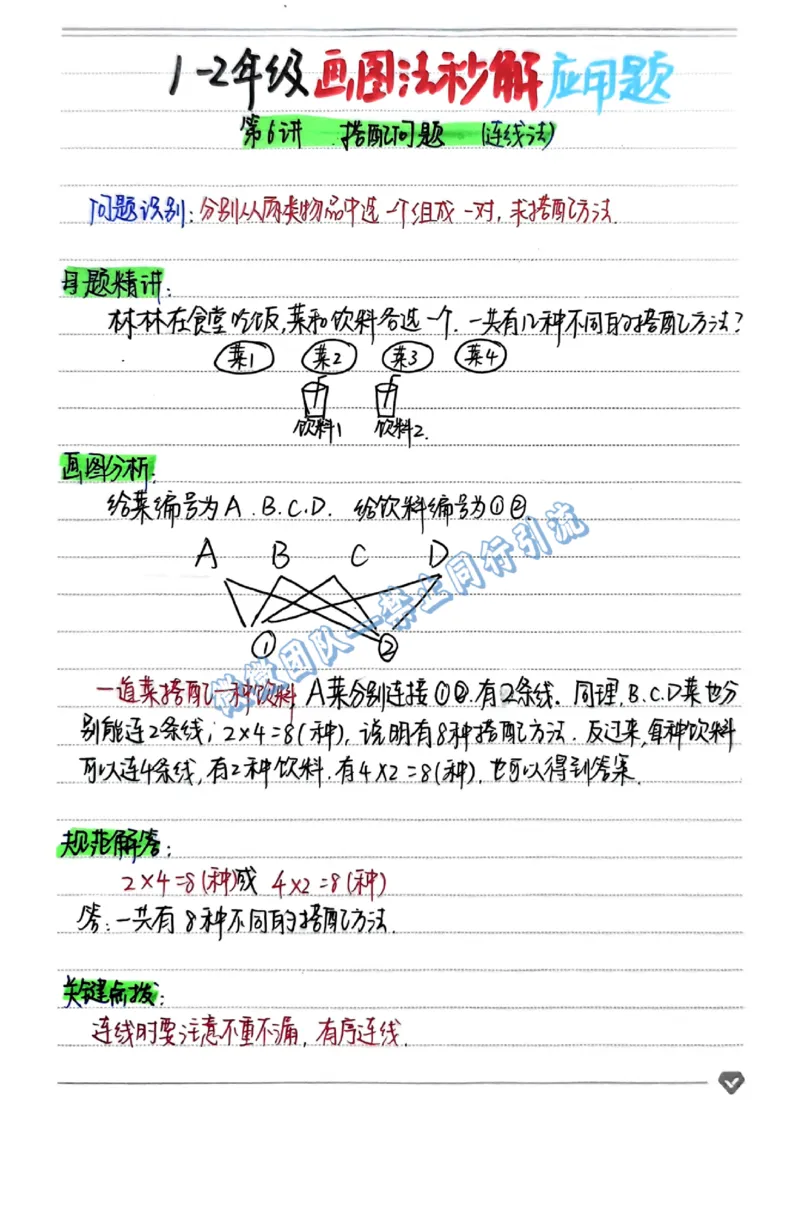 1-2年级画图法秒解应用题
第6讲 搭配问题 (连线法)
问题识别:分别从两类物品中选一个组成一对,求搭配方法.
母题精讲:
林林在食堂吃饭,菜和饮料各选一个.一共有几种不同的搭配方法?
菜1 菜2 菜3 菜4
饮料1 饮料2.
画图分析:
给菜编号为A.B.C.D. 给饮料编号为①②.
A B C D
① ②
微微团队一禁止同行引流
一道菜搭配一种饮料 A菜分别连接①②.有2条线.同理,B.C.D菜也分
别能连2条线;2×4=8(种),说明有8种搭配方法.反过来,每种饮料
可以连4条线,有2种饮料.有4×2=8(种).也可以得到答案.
规范解答:
2×4=8(种)或 4×2=8(种)
答:一共有8种不同的搭配方法.
关键点拨:
连线时要注意不重不漏,有序连线.